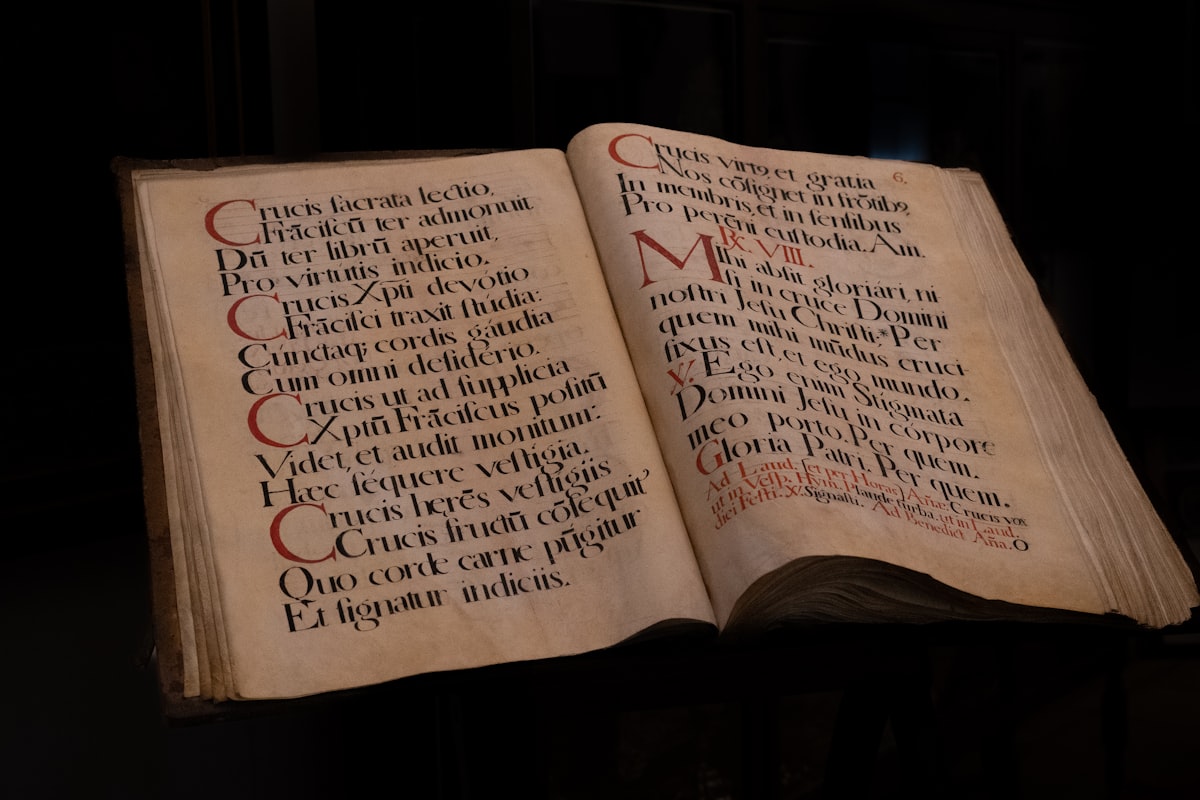 Crucis ſacrata lectio,
Frãciſcũ ter admonuit
Dũ ter librũ aperuit,
Pro virtútis indício.
Crucis Xp̃ti devótio
Frãciſci traxit ſtúdia:
Cũnctaq; cordis gáudia
Cum omni deſidério.
Crucis ut ad ſupplícia
Xp̃tũ Frãciſcus poſitũ
Videt, et audit monitum:
Hæc ſéquere veſtígia.
Crucis herẽs veſtígiis
Crucis fructũ cõſequit'
Quo corde carne pũgitur
Et ſignatur indíciis.
6.
Crucis virt9, et gratia
Nos cõſignet in frõtib9,
In membris, et in ſenſibus
Pro perẽni cuſtodia. Am.
R. VIII.
Mihi abſit gloriári, ni
ſi in cruce Domini
noſtri Jeſu Chriſti: * Per
quem mihi mũdus cruci-
fixus eſt, et ego mundo.
V. Ego enim Stigmata
Domini Jeſu in córpore
meo porto. Per quem.
Gloria Patri. Per quem.
Ad Laud. (et per Horas) Añæ. Crucis vox
ut in Veſp. Hym. Plaude turba. ut in Laud.
diei Feſti. V. Signaſti. Ad Benedict Aña. O